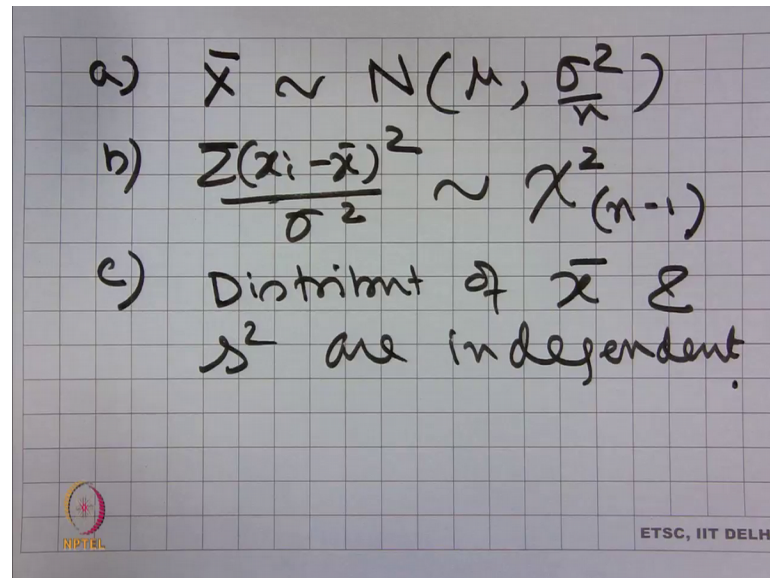 a) X̄ ~ N(μ, σ²/n)
b) Σ(xi - x̄)²/σ² ~ χ²(n-1)
c) Distribnt of x̄ &
s² are independent.
NPTEL
ETSC, IIT DELH